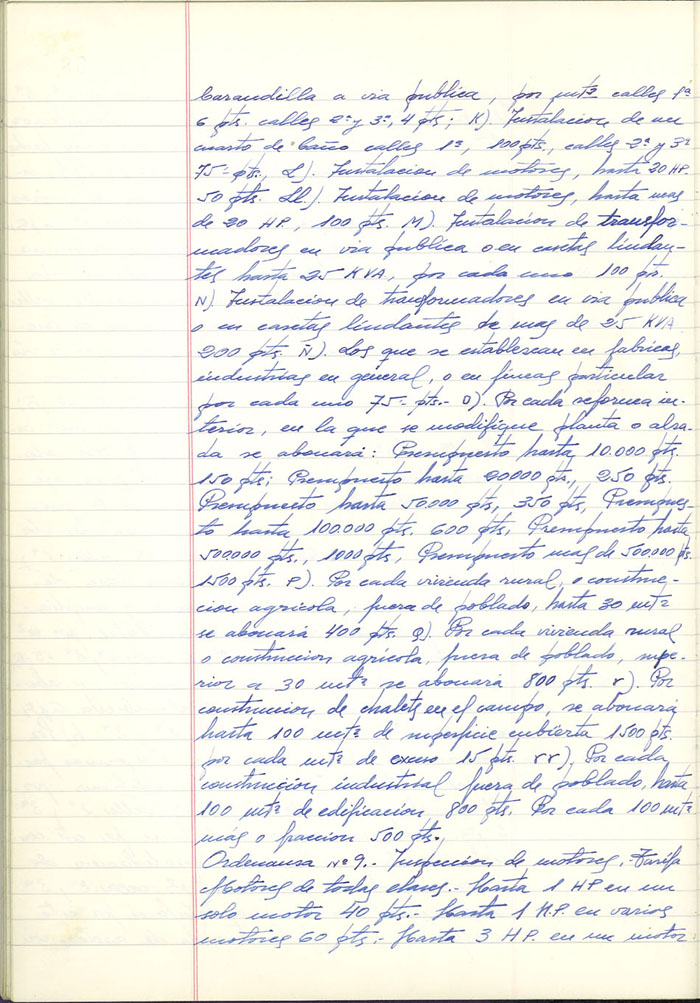 barandilla a via publica, por mtª calles 1ª
6 pts. calles 2ª y 3ª, 4 pts; K). Instalacion de un
cuarto de baño calles 1ª, 100 pts., calles 2ª y 3ª
75- pts., L). Instalacion de motores, hasta 20 HP.
50 pts. Ll). Instalacion de motores, hasta mas
de 20 HP., 100 pts. M). Instalacion de transfor-
madores en via publica o en casetas lindan-
tes hasta 25 KVA, por cada uno 100 pts.
N). Instalacion de transformadores en via publica
o en casetas lindantes de mas de 25 KVA
200 pts. Ñ). Los que se establezcan en fabricas,
industrias en general, o en fincas particular
por cada uno 75- pts.- O). Por cada reforma in-
terior, en la que se modifique planta o alza-
da se abonará: Presupuesto hasta 10.000 pts.
150 pts; Presupuesto hasta 20000 pts., 250 pts.
Presupuesto hasta 50.000 pts, 350 pts, Presupues-
to hasta 100.000 pts. 600 pts, Presupuesto hasta
500.000 pts., 1000 pts, Presupuesto mas de 500.000 pts.
1500 pts. P). Por cada vivienda rural, o construc-
cion agricola, fuera de poblado, hasta 30 mtª
se abonará 400 pts. Q). Por cada vivienda rural
o construccion agricola, fuera de poblado, supe-
rior a 30 mtª se abonará 800 pts. r). Por
construccion de chalets en el campo, se abonará
hasta 100 mtª de superficie cubierta 1500 pts.
por cada mtª de exceso 15 pts. rr). Por cada
construccion industrial fuera de poblado, hasta
100 mtª de edificación, 800 pts. Por cada 100 mtª
más o fraccion 500 pts.
Ordenansa nº 9.- Inspeccion de motores.- Tarifa
Motores de todas clases.- Hasta 1 HP en un
solo motor 40 pts.- Hasta 1 H.P. en varios
motores 60 pts.- Hasta 3 HP. en un motor